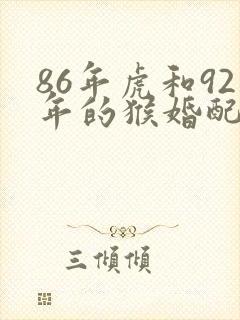 86年虎和92
年的猴婚配
三倾倾